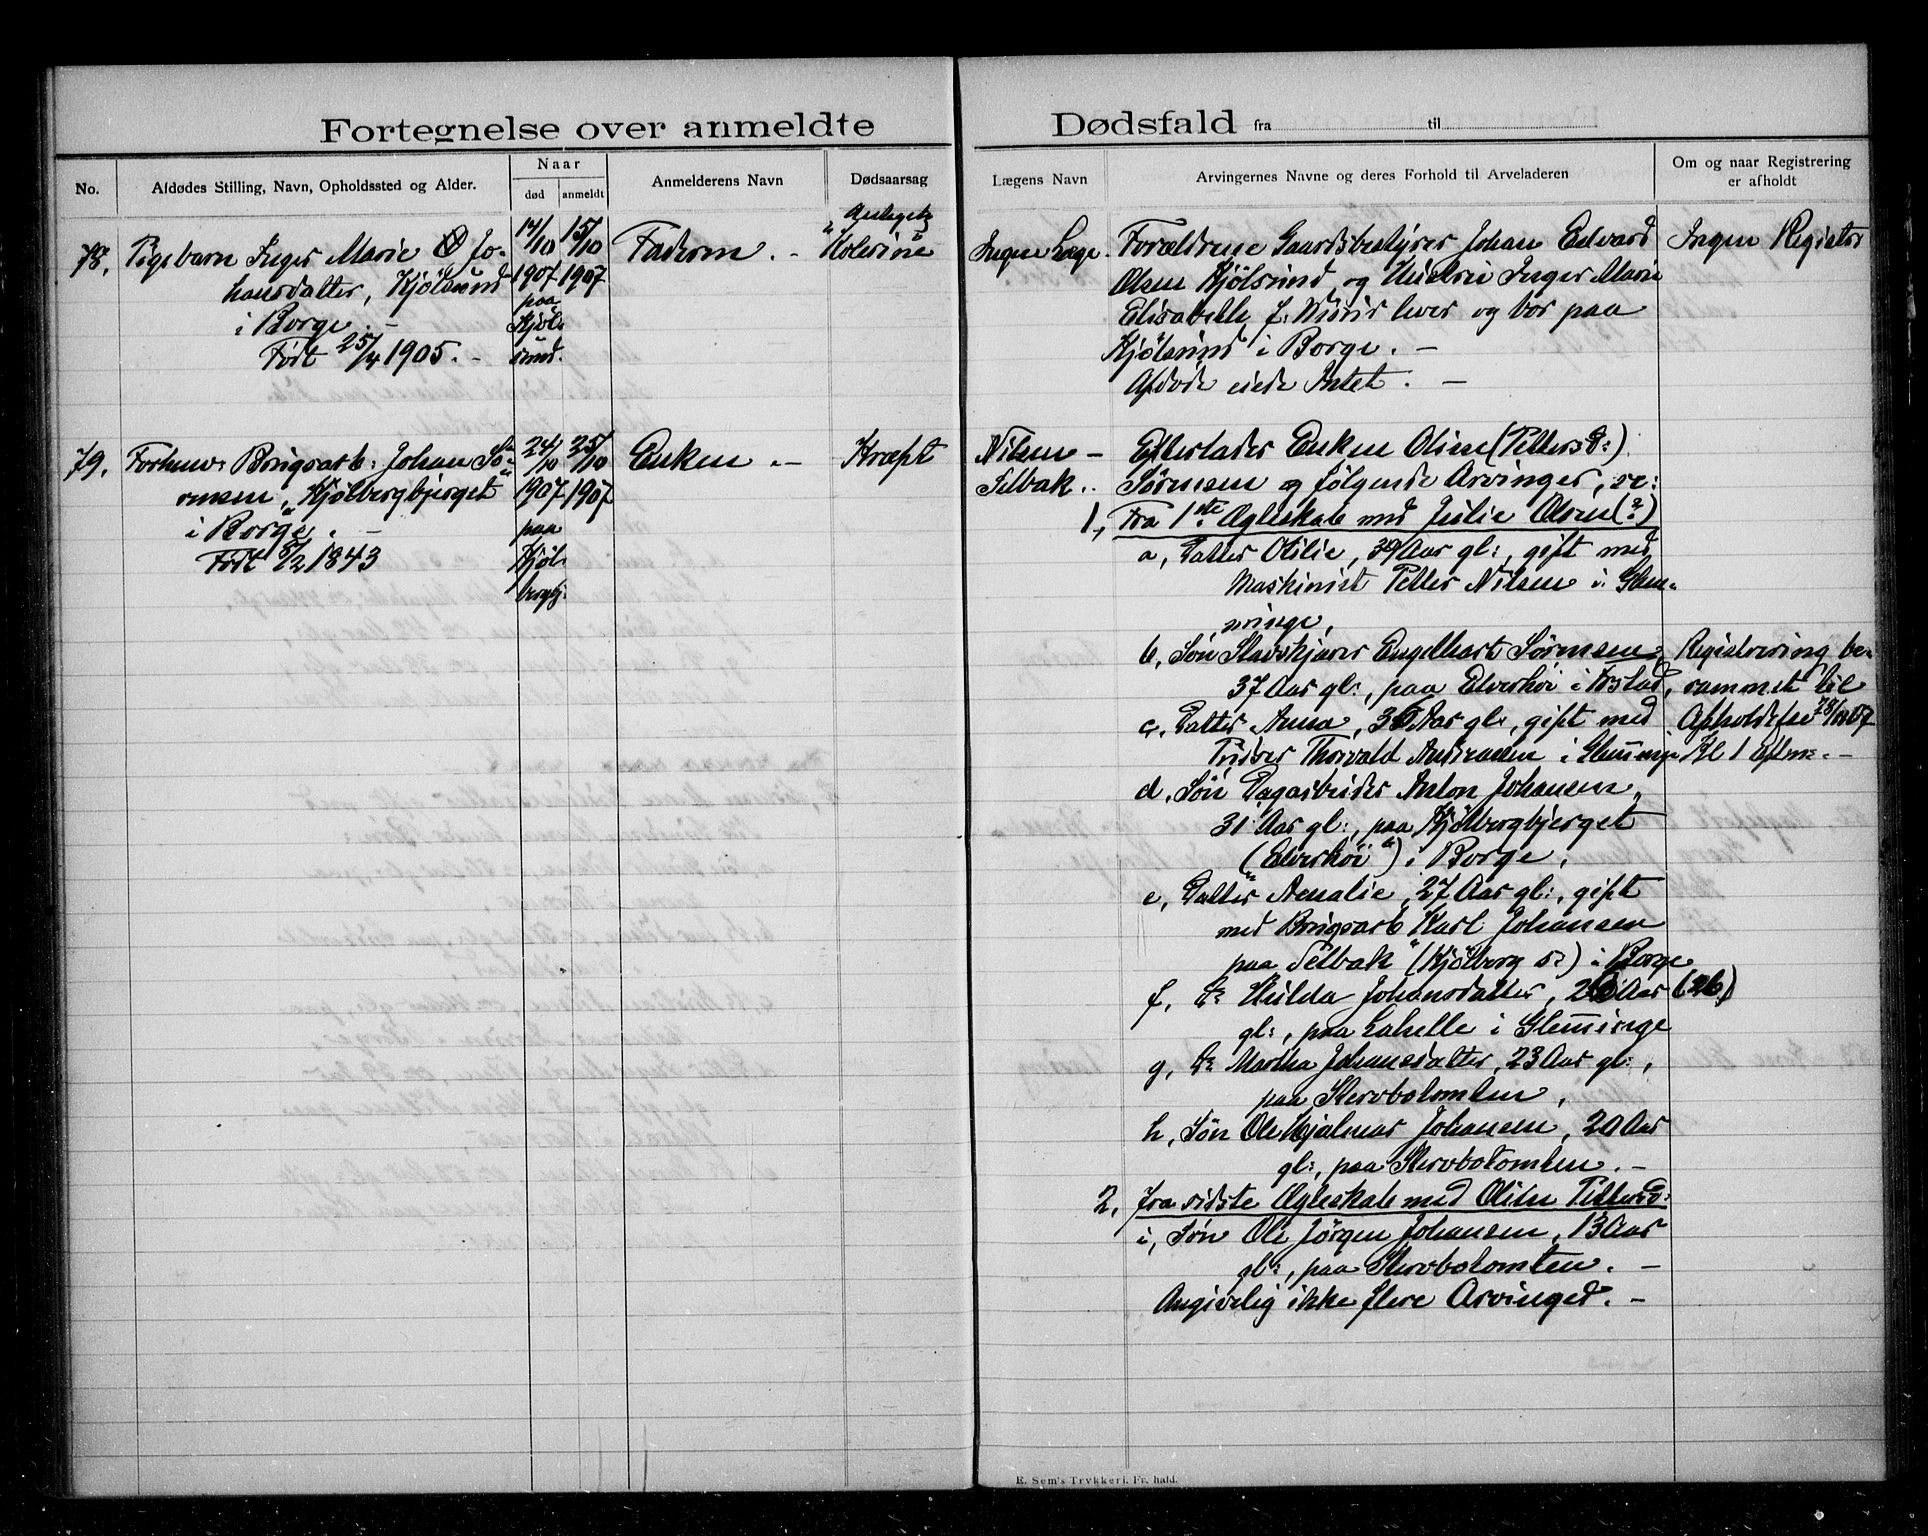 Fortegnelse over anmeldte Dødsfald fra til
No.
Afdødes Stilling, Navn, Opholdssted og Alder.
Naar
død
anmeldt
Anmelderens Navn
Dødsaarsag
Lægens Navn
Arvingernes Navne og deres Forhold til Arveladeren
Om og naar Registrering
er afholdt
78.
Pigebarn Inger Marie Jo-
hansdatter, Kjölsund
i Borge. -
Födt 25/4 1905. -
14/10
1907
paa
Kjöl-
sund.
15/10
1907
Faderen. -
"Antagel:
Kolerine
Ingen Læge.
Forældrene Gaardsbestyrer Johan Edvard
Olsen Kjölsund og Hustru Inger Marie
Elisabeth f: lever og bor paa
Kjölsund i Borge. -
Afdöde eiede Intet. -
Ingen Registr:
79.
Forhenv: Brugsarb: Johan Sö-
rensen, "Kjölbergbjerget"
i Borge. -
Födt 5/2 1843
24/10
1907
paa
Kjöl-
bergbj.
25/10
1907
Enken. -
Kræft
Nilsen -
Selbak..
Efterlader Enken Oline (Pettersd:)
Sörensen og fölgende Arvinger, :
1, Fra 1ste Ægteskab med Julie Olsen (?)
a, Datter Otilie, 39 Aar gl:, gift med
Maskinist Petter Nilsen i Glem-
minge,
b, Sön Stuvskjörer Engelhart Sörensen,
37 Aar gl:, paa Elverhöi i Krstad,
c, Datter Anna, 36 Aar gl:, gift med
Thorvald Andreasen i Glemminge
d, Sön Dagarbeider Anton Johansen,
31 Aar gl:, paa Kjölbergbjerget
("Elverhöi") i Borge,
e, Datter Amalie, 27 Aar gl:, gift
med Brugsarb Karl Johansen
paa Selbak" (Kjölberg s:) i Borge
f, D: Hulda Johansdatter, 26 Aar (26)
gl:, paa Lahelle i Glemminge
g, D: Martha Johansdatter, 23 Aar gl:,
paa Stervbotomten,
h, Sön Ole Hjalmar Johansen, 20 Aar
gl:, paa Stervbotomten. -
2, fra sidste Ægteskab med Oline Pettersd:
i, Sön Ole Jörgen Johansen, 13 Aar
gl:, paa Stervbotomten. -
Angivelig ikke flere Arvinger. -
Registrering be-
rammet til
Afholdelse 28/10 07
Kl 1 Eftm. -
E. Sem's Trykkeri, Fr. hald.